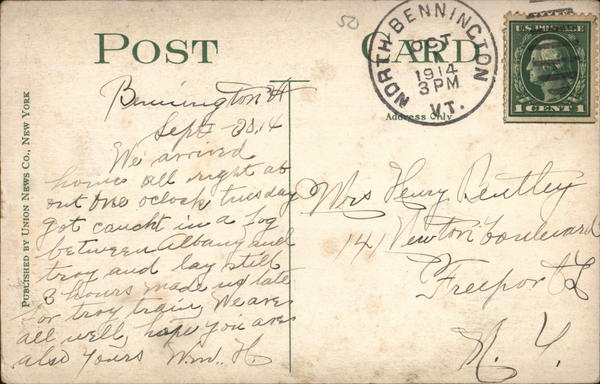 50
POST CARD
NORTH BENNINGTON
OCT
1914
3 PM
VT.
U.S. POSTAGE
1 CENT 1
Address Only
PUBLISHED BY UNION NEWS CO., NEW YORK
Bennington Vt
Sept 30. 14
We arrived
home all right at
out one oclock tuesday
got caught in a fog
between Albany and
troy and lay still
3 hours made us late
for troy train, We are
all well, hope you are
also Yours Wm. H.
Mrs Henry Bentley
141 Newton boulevard
Freeport L
N. Y.